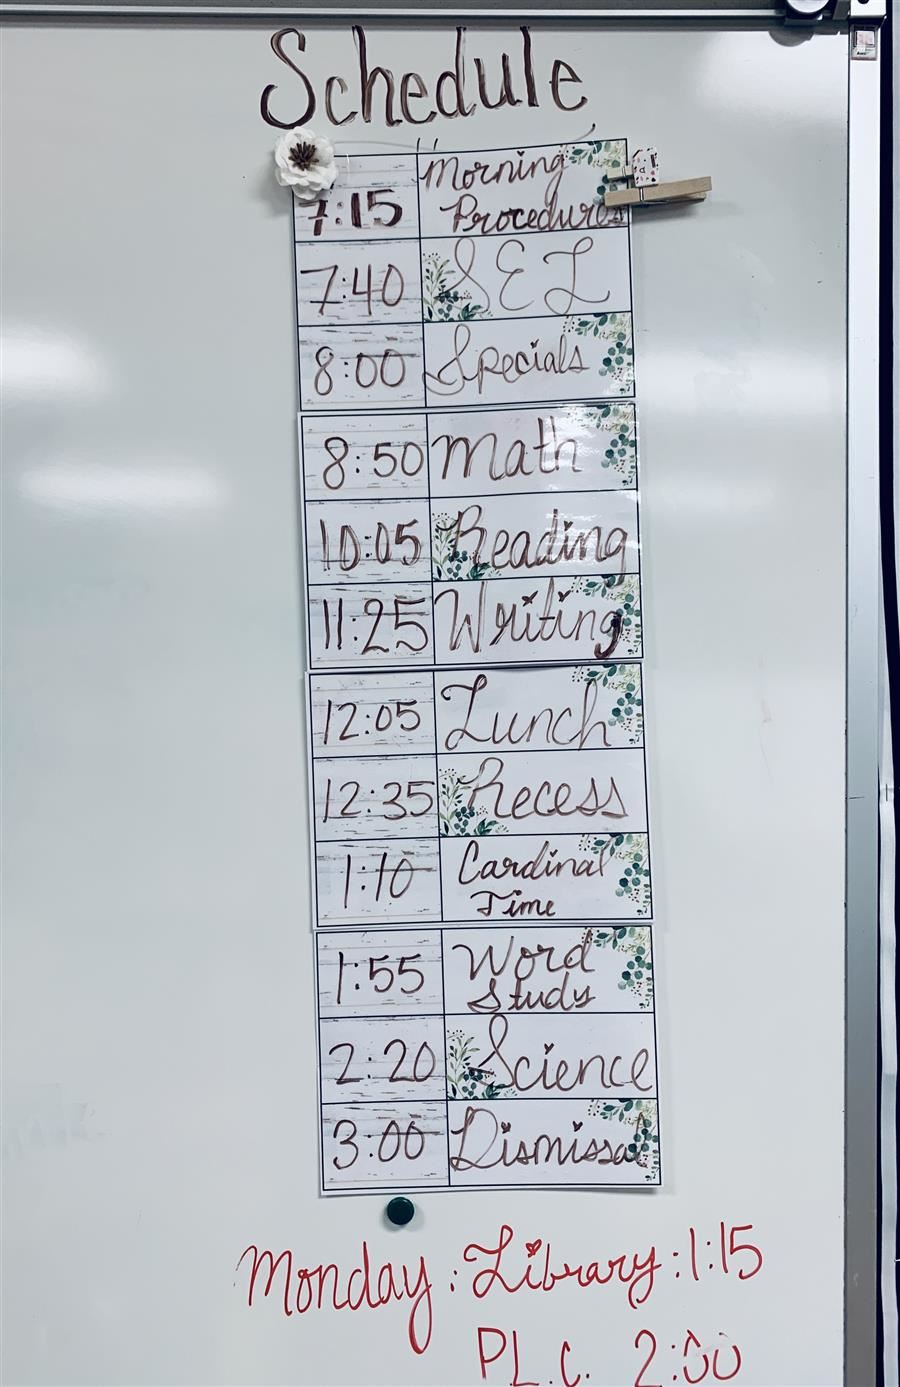 Schedule
7:15 Morning
Procedures
7:40 SEL
8:00 Specials
8:50 Math
10:05 Reading
11:25 Writing
12:05 Lunch
12:35 Recess
1:10 Cardinal
Time
1:55 Word
Study
2:20 Science
3:00 Dismissal
Monday: Library: 1:15
P.L.C. 2:00